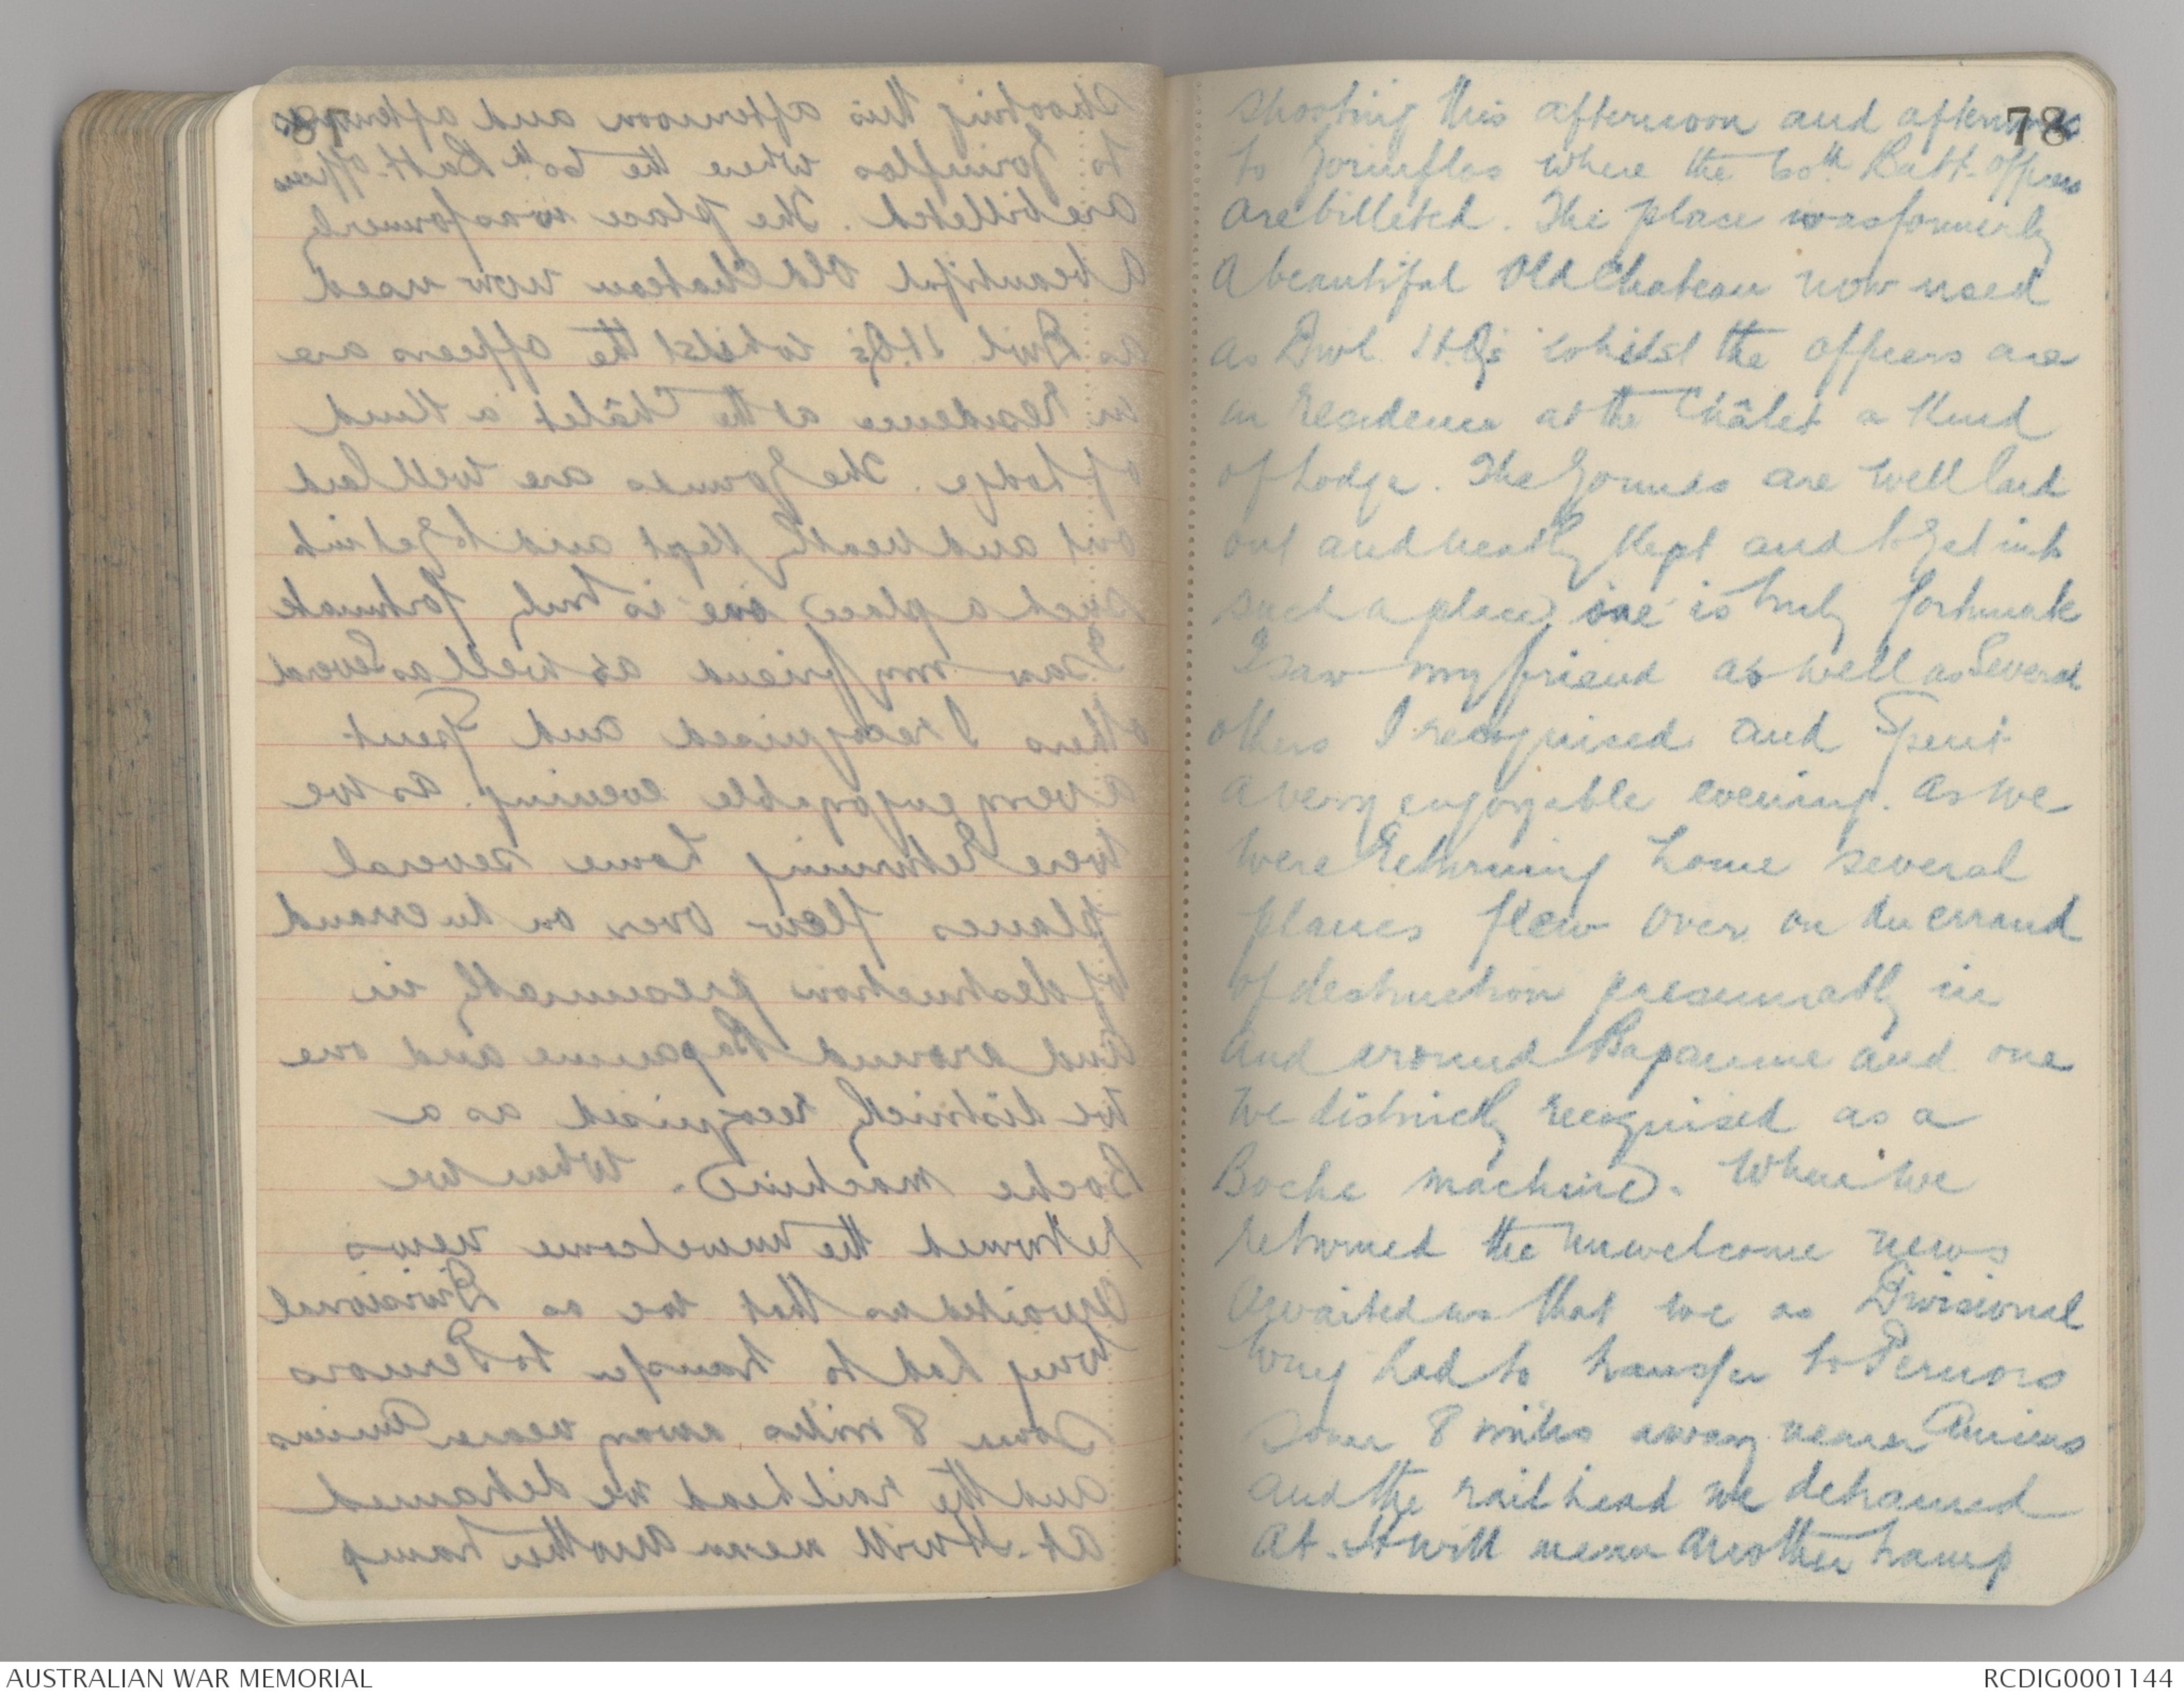 78
shooting this afternoon and afterwards
to Gorenflos where the 60th Batt. officers
are billeted. The place was formerly
a beautiful Old Chateau now used
as Divl. H.Q's whilst the officers are
in Residence at the Châlet a Kind
of Lodge. The Gounds are well laid
out and neatly Kept and to get into
such a place one is truly fortunate
I saw my friend as well as Several
others I recognised and Spent
a very enjoyable evening. As we
were Returning home several
planes flew over on an errand
of destruction presumably in
and around Bapaume and one
we distinctly recognised as a
Boche machine. When we
returned the unwelcome news
awaited us that we as Divisional
Wing had to transfer to Pernois
some 8 miles away nearer Amiens
and the rail head we detrained
at. It will mean another tramp
AUSTRALIAN WAR MEMORIAL
RCDIG0001144